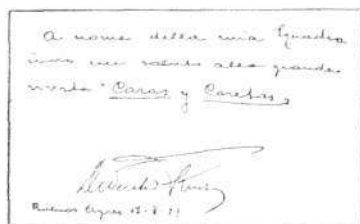 A nome della mia Squadra
invio un saluto alla grande
rivista "Caras y Caretas"
Buenos Ayres